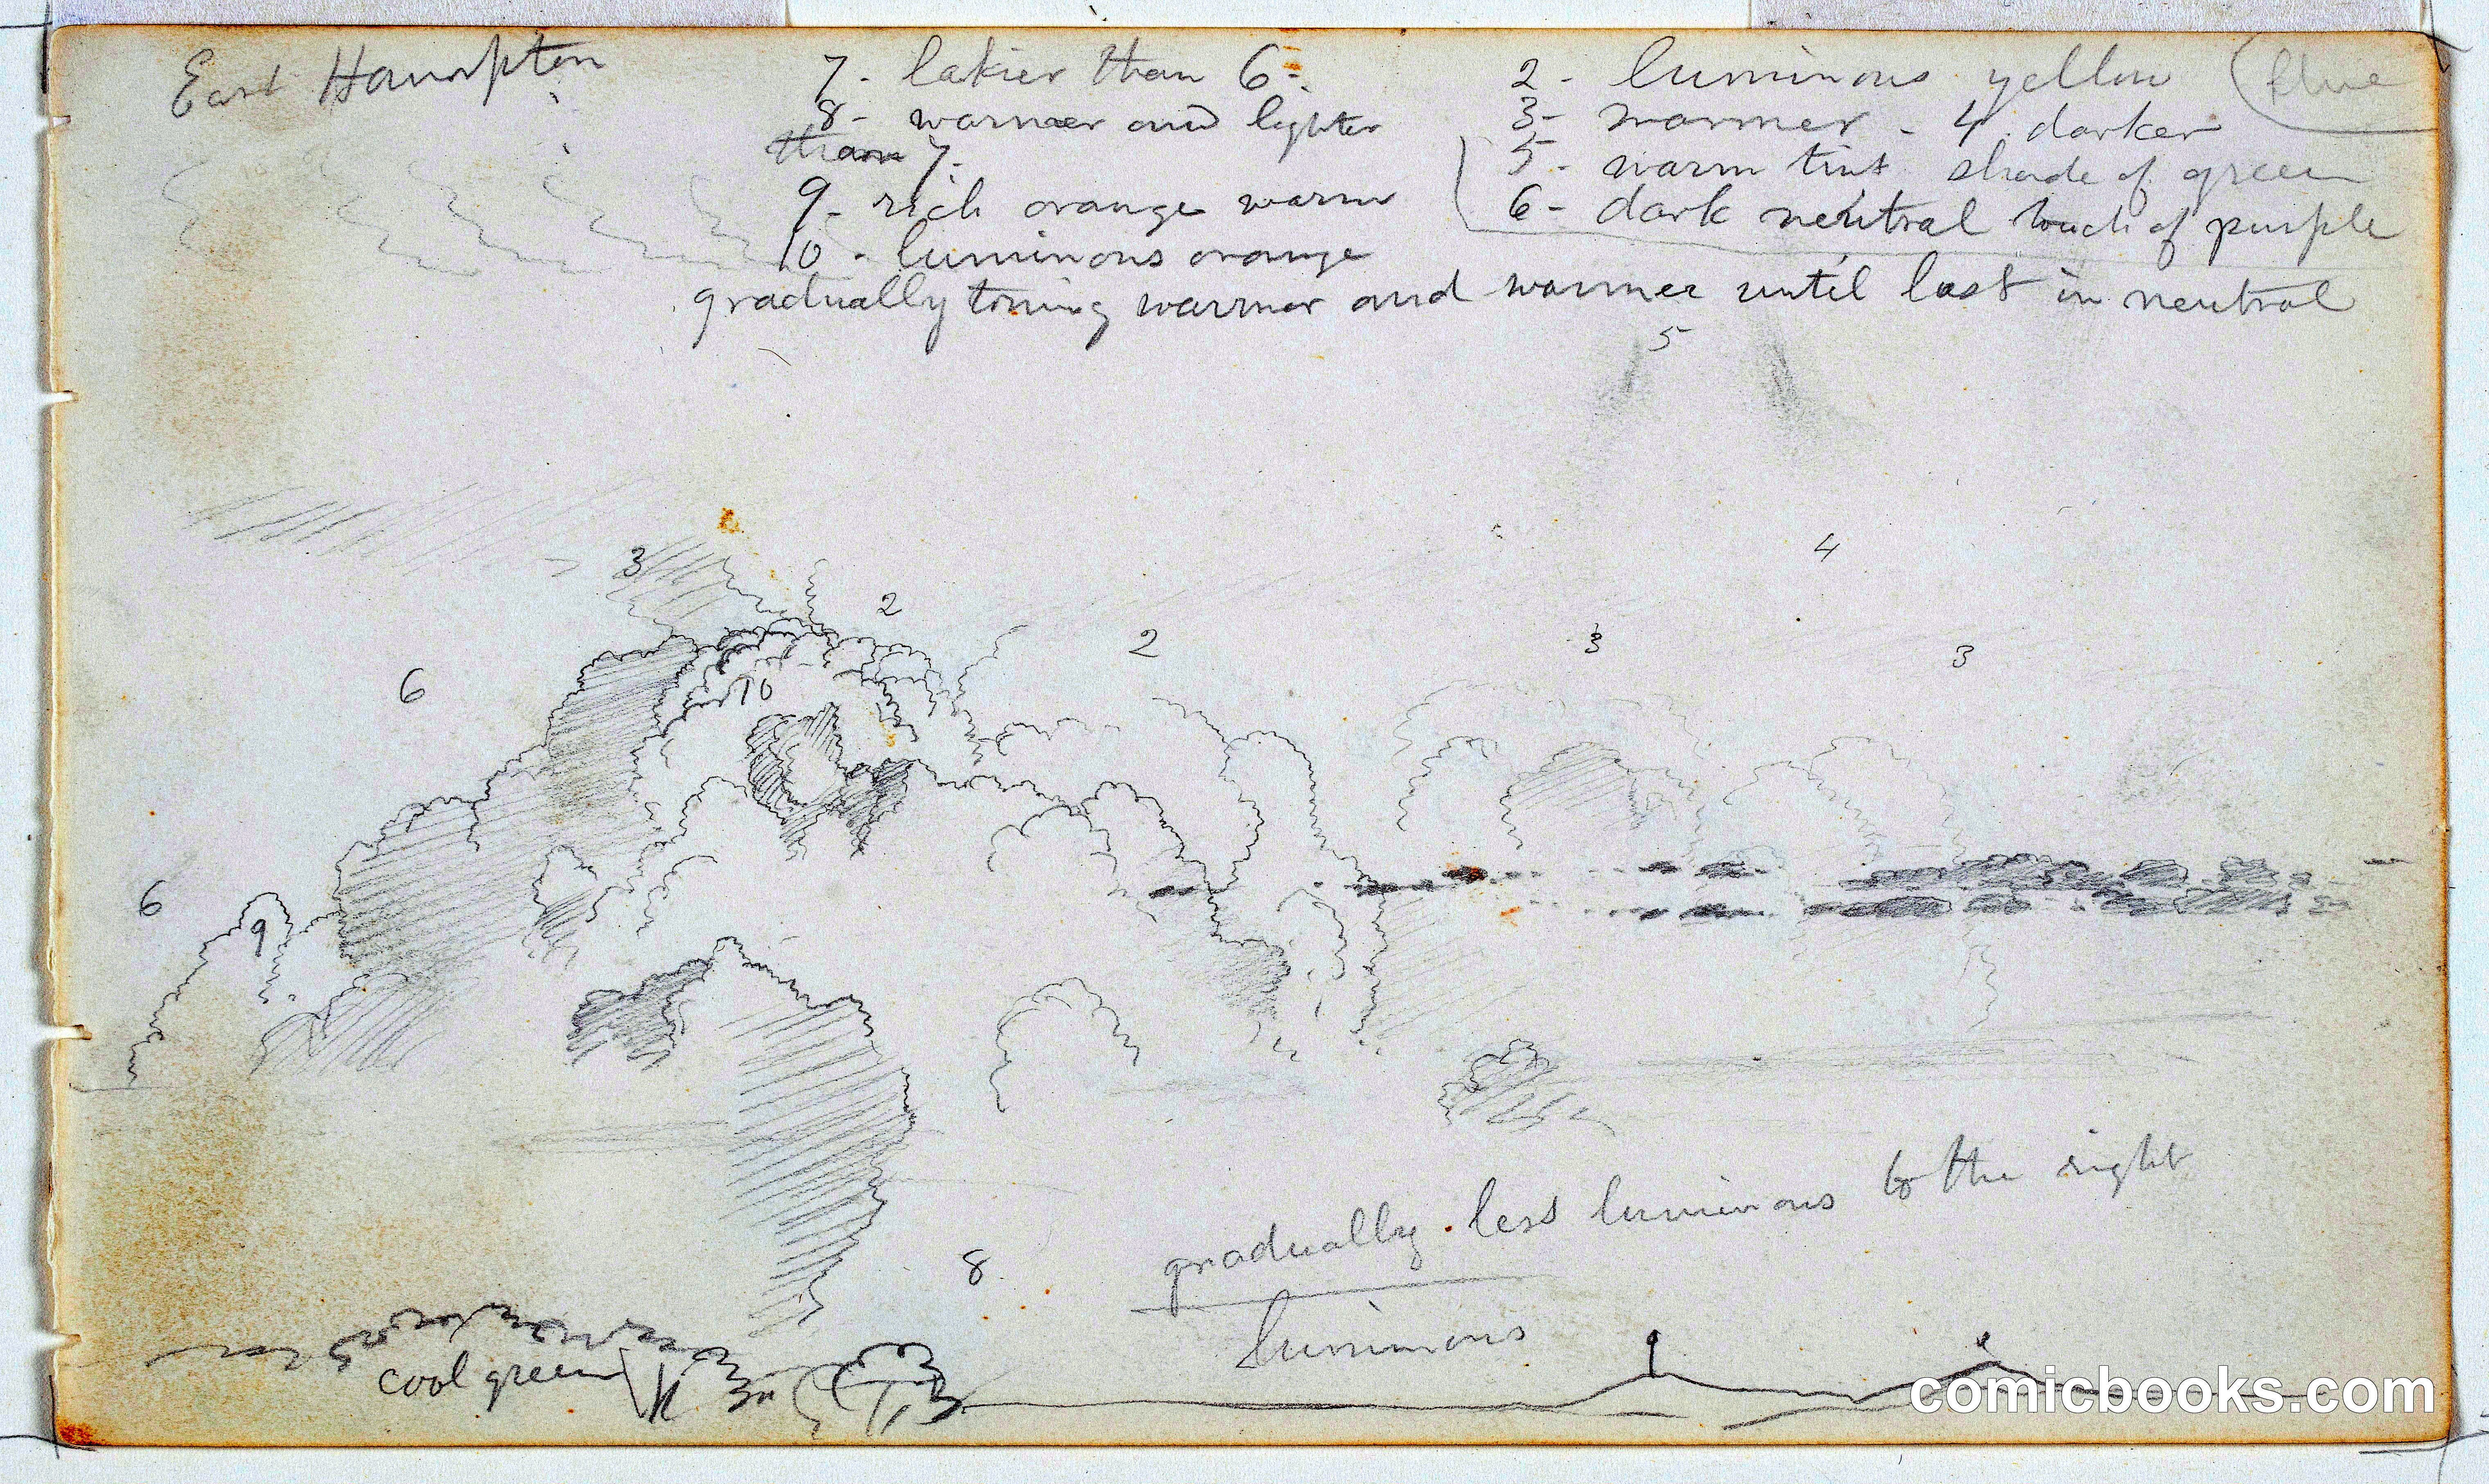 East Hampton
7 - lakier than 6 -
8 - warmer and lighter
than 7.
9 - rich orange warm
10 - luminous orange
2 - luminous yellow (blue
3 - warmer - 4. darker
5 - warm tint shade of green
6 - dark neutral touch of purple
gradually toning warmer and warmer until lost in neutral
5
4
3
2
2
3
3
6
10
6
9
gradually less luminous to the right
8
luminous
cool green
comicbooks.com